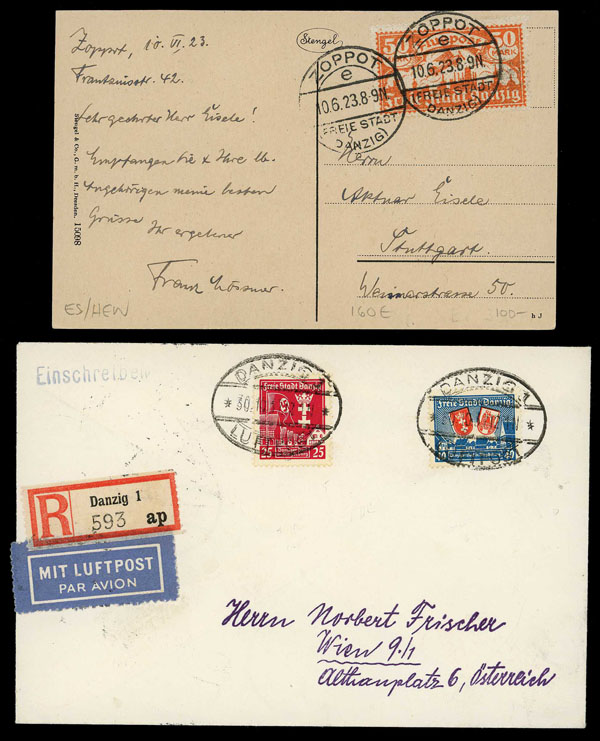 Zoppot, 10. VI. 23.
Frantziusstr. 42.
Sehr geehrter Herr Eisele!
Empfangen Sie & Ihre lb.
Angehörigen meine besten
Grüsse Ihr ergebener
Franz
Stengel & Co., G. m. b. H., Dresden. 15098
Stengel
ZOPPOT
e
10.6.23.8-9N.
(FREIE STADT
DANZIG)
ZOPPOT
e
10.6.23.8-9N.
(FREIE STADT
DANZIG)
50
Flugpost
50
MARK
Danzig
Herrn
Aktuar Eisele
Stuttgart.
Weimarstrasse 50.
ES/HEW
160E
100-
h J
Einschreiben
DANZIG 1
* 30.1 *
LUFTPOST
Freie Stadt Danzig
25
25
DANZIG 1
Freie Stadt Danzig
40
R
Danzig 1
593 ap
MIT LUFTPOST
PAR AVION
Herrn Norbert Frischer
Wien 9/1
Althanplatz 6, Österreich